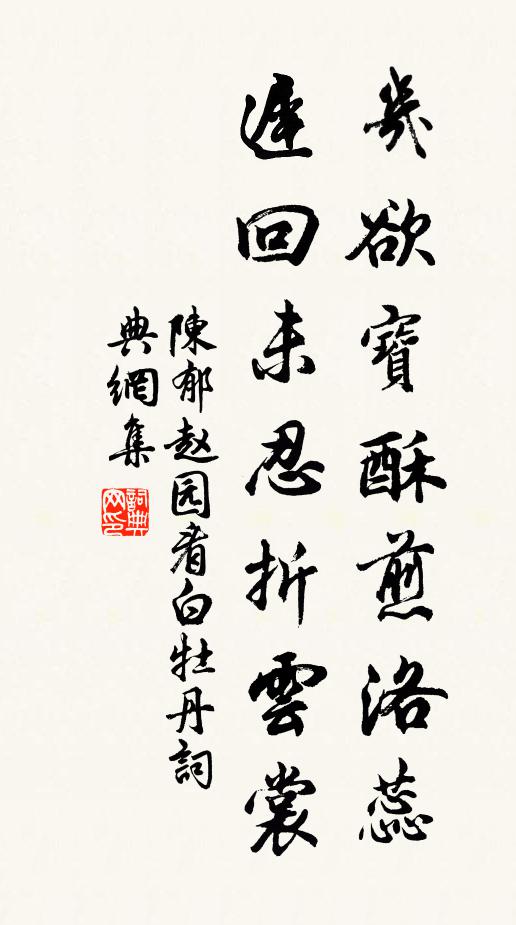 幾欲寶酥煎洛蕊
遲回未忍折雲裳
陳郁赵园看白牡丹詞
典網集
詞典
网印